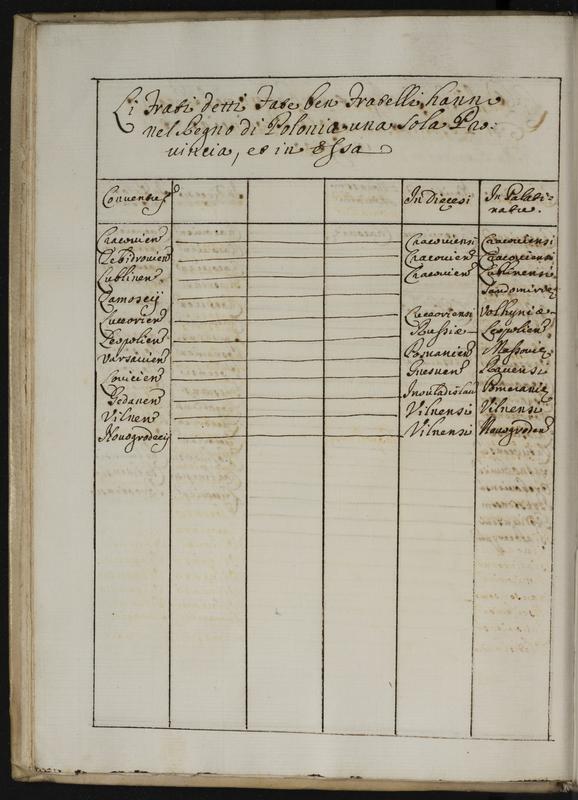 Li Frati detti Fate ben Fratelli hanno
nel Regno di Polonia una sola Pro:
vincia, et in Essa
Conventus In Dięcesi In Palati=
natu.
Cracovien Cracoviensi Cracoviensi
Zebidrovien Cracovien Cracoviensi
Lublinen. Cracovien Lublinensi
Zamoscij Sandomirien
Luceorien Luceoriensi Volhyniæ
Leopolien Russiæ Leopolien
Varsavien Posnanien Massoviæ
Lovicien Gnesnen Ravensi
Gedanen Inouladislau Pomeraniæ
Vilnen Vilnensi Vilnensi
Novogrodecij Vilnensi Novogroden